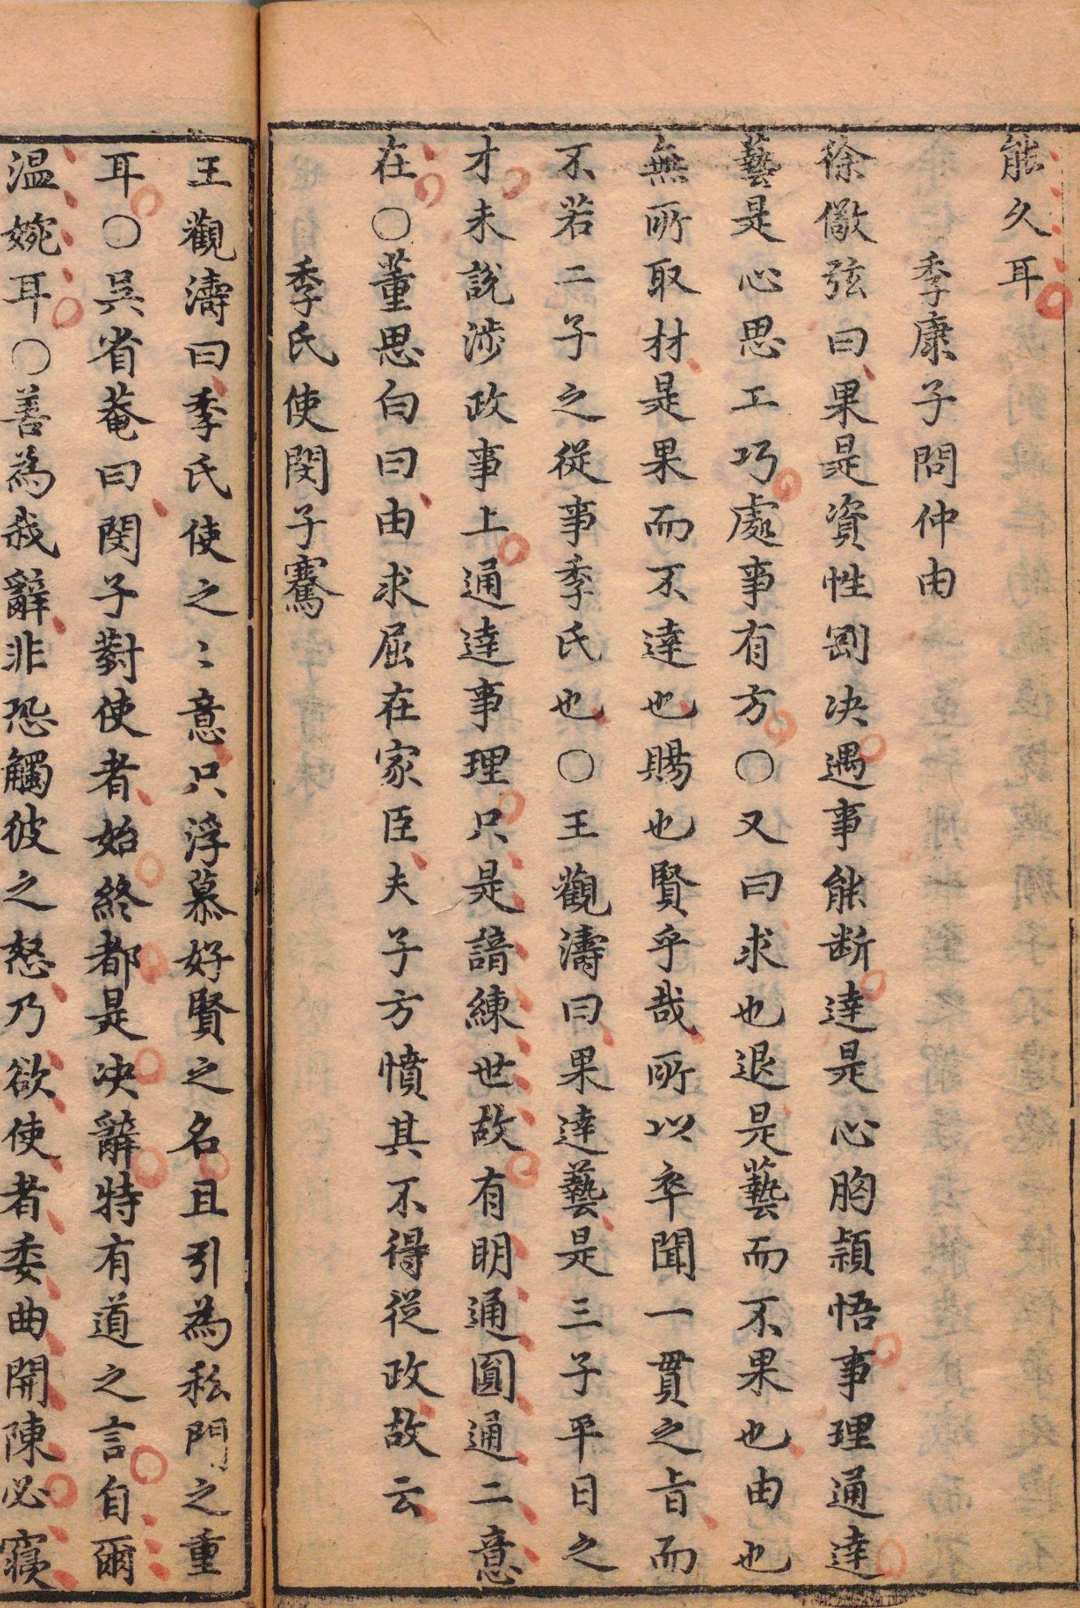 能久耳
季康子問仲由
徐儆弦曰果是資性剛决遇事能断達是心胸頴悟事理通達
藝是心思工巧處事有方○又曰求也退是藝而不果也由也
無所取材是果而不達也賜也賢乎哉所以卒聞一貫之旨而
不若二子之從事季氏也○王觀濤曰果達藝是三子平日之
才未説涉政事上通達事理只是諳練世故有明通圓通二意
在○董思白曰由求屈在家臣夫子方憤其不得從政故云
季氏使閔子騫
王觀濤曰季氏使之〻意只浮慕好賢之名且引為私門之重
耳○吳省菴曰閔子對使者始終都是决辭特有道之言自爾
温婉耳○善為我辭非恐觸彼之怒乃欲使者委曲開陳必寝